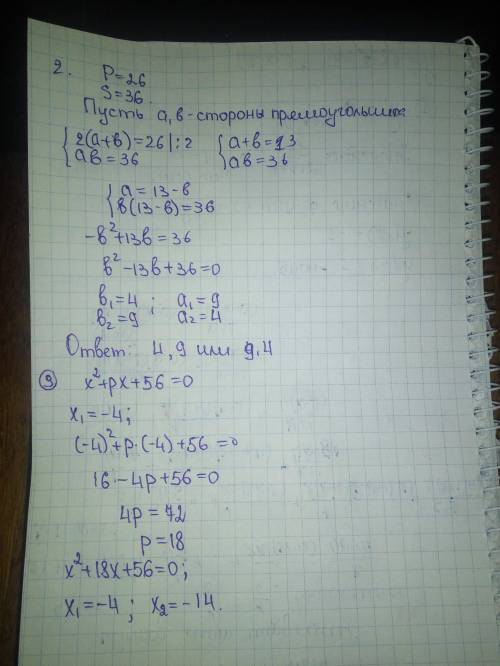 2. P=26
S=36.
Пусть а, в - стороны прямоугольник
{2(а+в)=26 |:2 {а+в=13
{ав=36 {ав=36
{а=13-в
{в(13-в)=36
-в²+13в=36
в²-13в+36=0
в₁=4 ; а₁=9
в₂=9 а₂=4
Ответ: 4, 9 или 9, 4
③ x²+px+56=0
x₁=-4;
(-4)²+p·(-4)+56=0
16-4p+56=0
4p=72
p=18
x²+18x+56=0;
x₁=-4 ; x₂=-14.